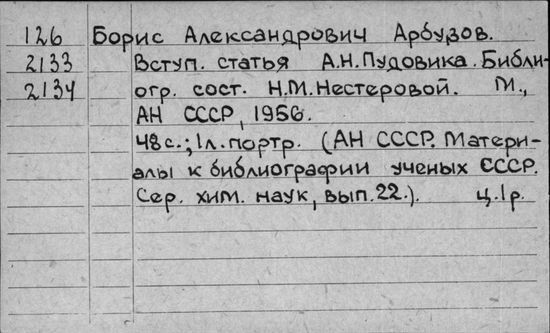 126 Борис Александрович Арбузов.
2133 Вступ. статья А.Н.Пудовика. Библи-
2134 огр. сост. Н.М.Нестеровой. М.,
АН СССР, 1956.
48с.; 1л. портр. (АН СССР. Матери-
алы к библиографии ученых СССР.
Сер. хим. наук, вып.22.). ц.1р.